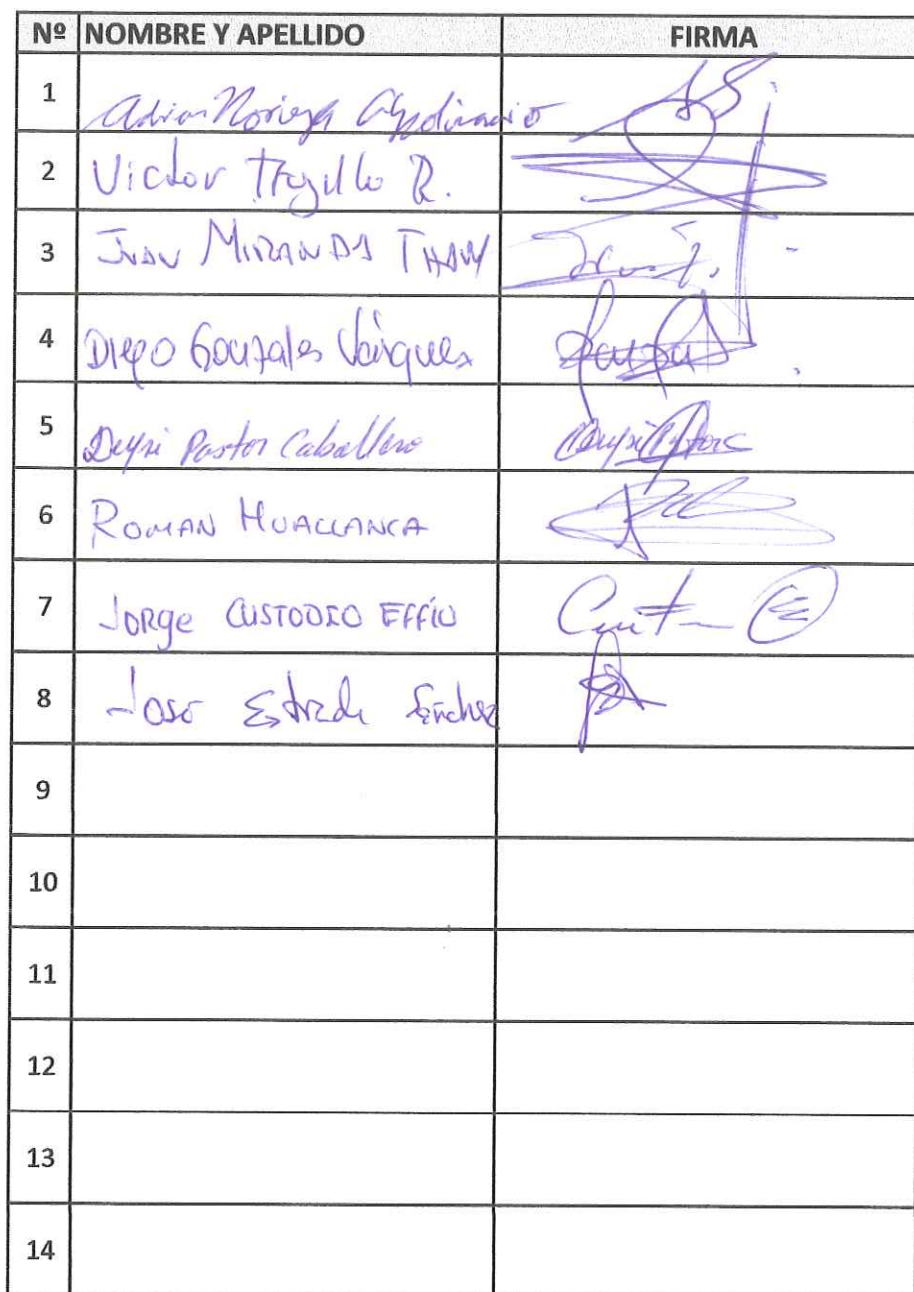 Nº NOMBRE Y APELLIDO FIRMA
1 Adrian Noriega Apolinario
2 Victor Trujillo R.
3 JUAN MIRANDA THAM
4 Diego Gonzales Vásquez
5 Deysi Pastor Caballero Deysi Pastor C
6 ROMAN HUALLANCA
7 JORGE CUSTODIO EFFÍO
8 Jose Estrada Sánchez
9
10
11
12
13
14